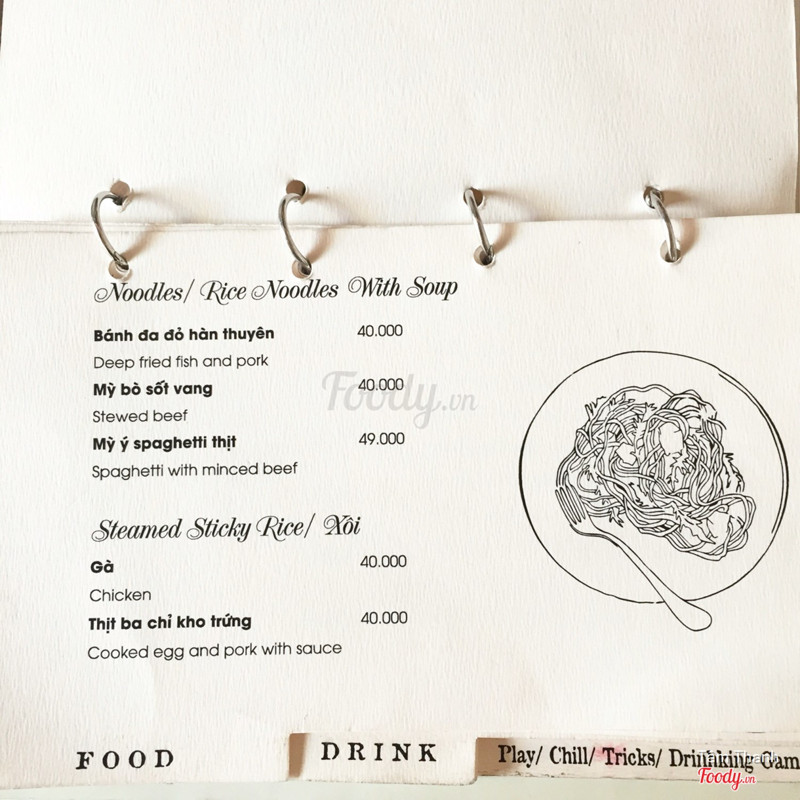 Noodles/ Rice Noodles With Soup
Bánh đa đỏ hàn thuyên 40.000
Deep fried fish and pork
Mỳ bò sốt vang 40.000
Stewed beef
Mỳ ý spaghetti thịt 49.000
Spaghetti with minced beef
Foody.vn
Steamed Sticky Rice/ Xôi
Gà 40.000
Chicken
Thịt ba chỉ kho trứng 40.000
Cooked egg and pork with sauce
FOOD
DRINK
Play/ Chill/ Tricks/ Drinnking Gam
Foody.vn